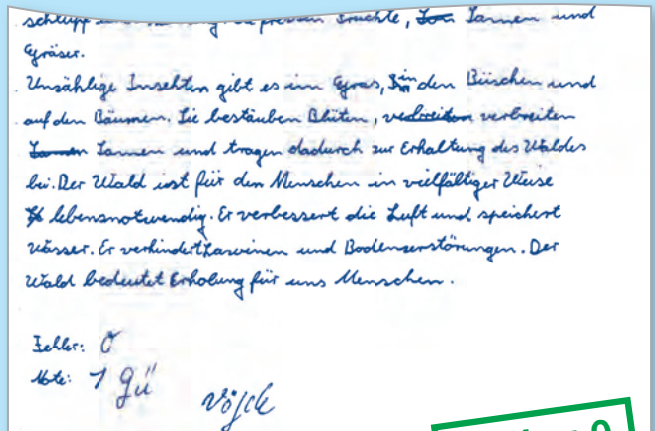 fressen Früchte, Samen und
Gräser.
Unzählige Insekten gibt es im Gras, in den Büschen und
auf den Bäumen. Sie bestäuben Blüten, verbreiten
Samen und tragen dadurch zur Erhaltung des Waldes
bei. Der Wald ist für den Menschen in vielfältiger Weise
lebensnotwendig. Er verbessert die Luft und speichert
Wasser. Er verhindert Lawinen und Bodenzerstörungen. Der
Wald bedeutet Erholung für uns Menschen.
Fehler: 0
Note: 1 Gü